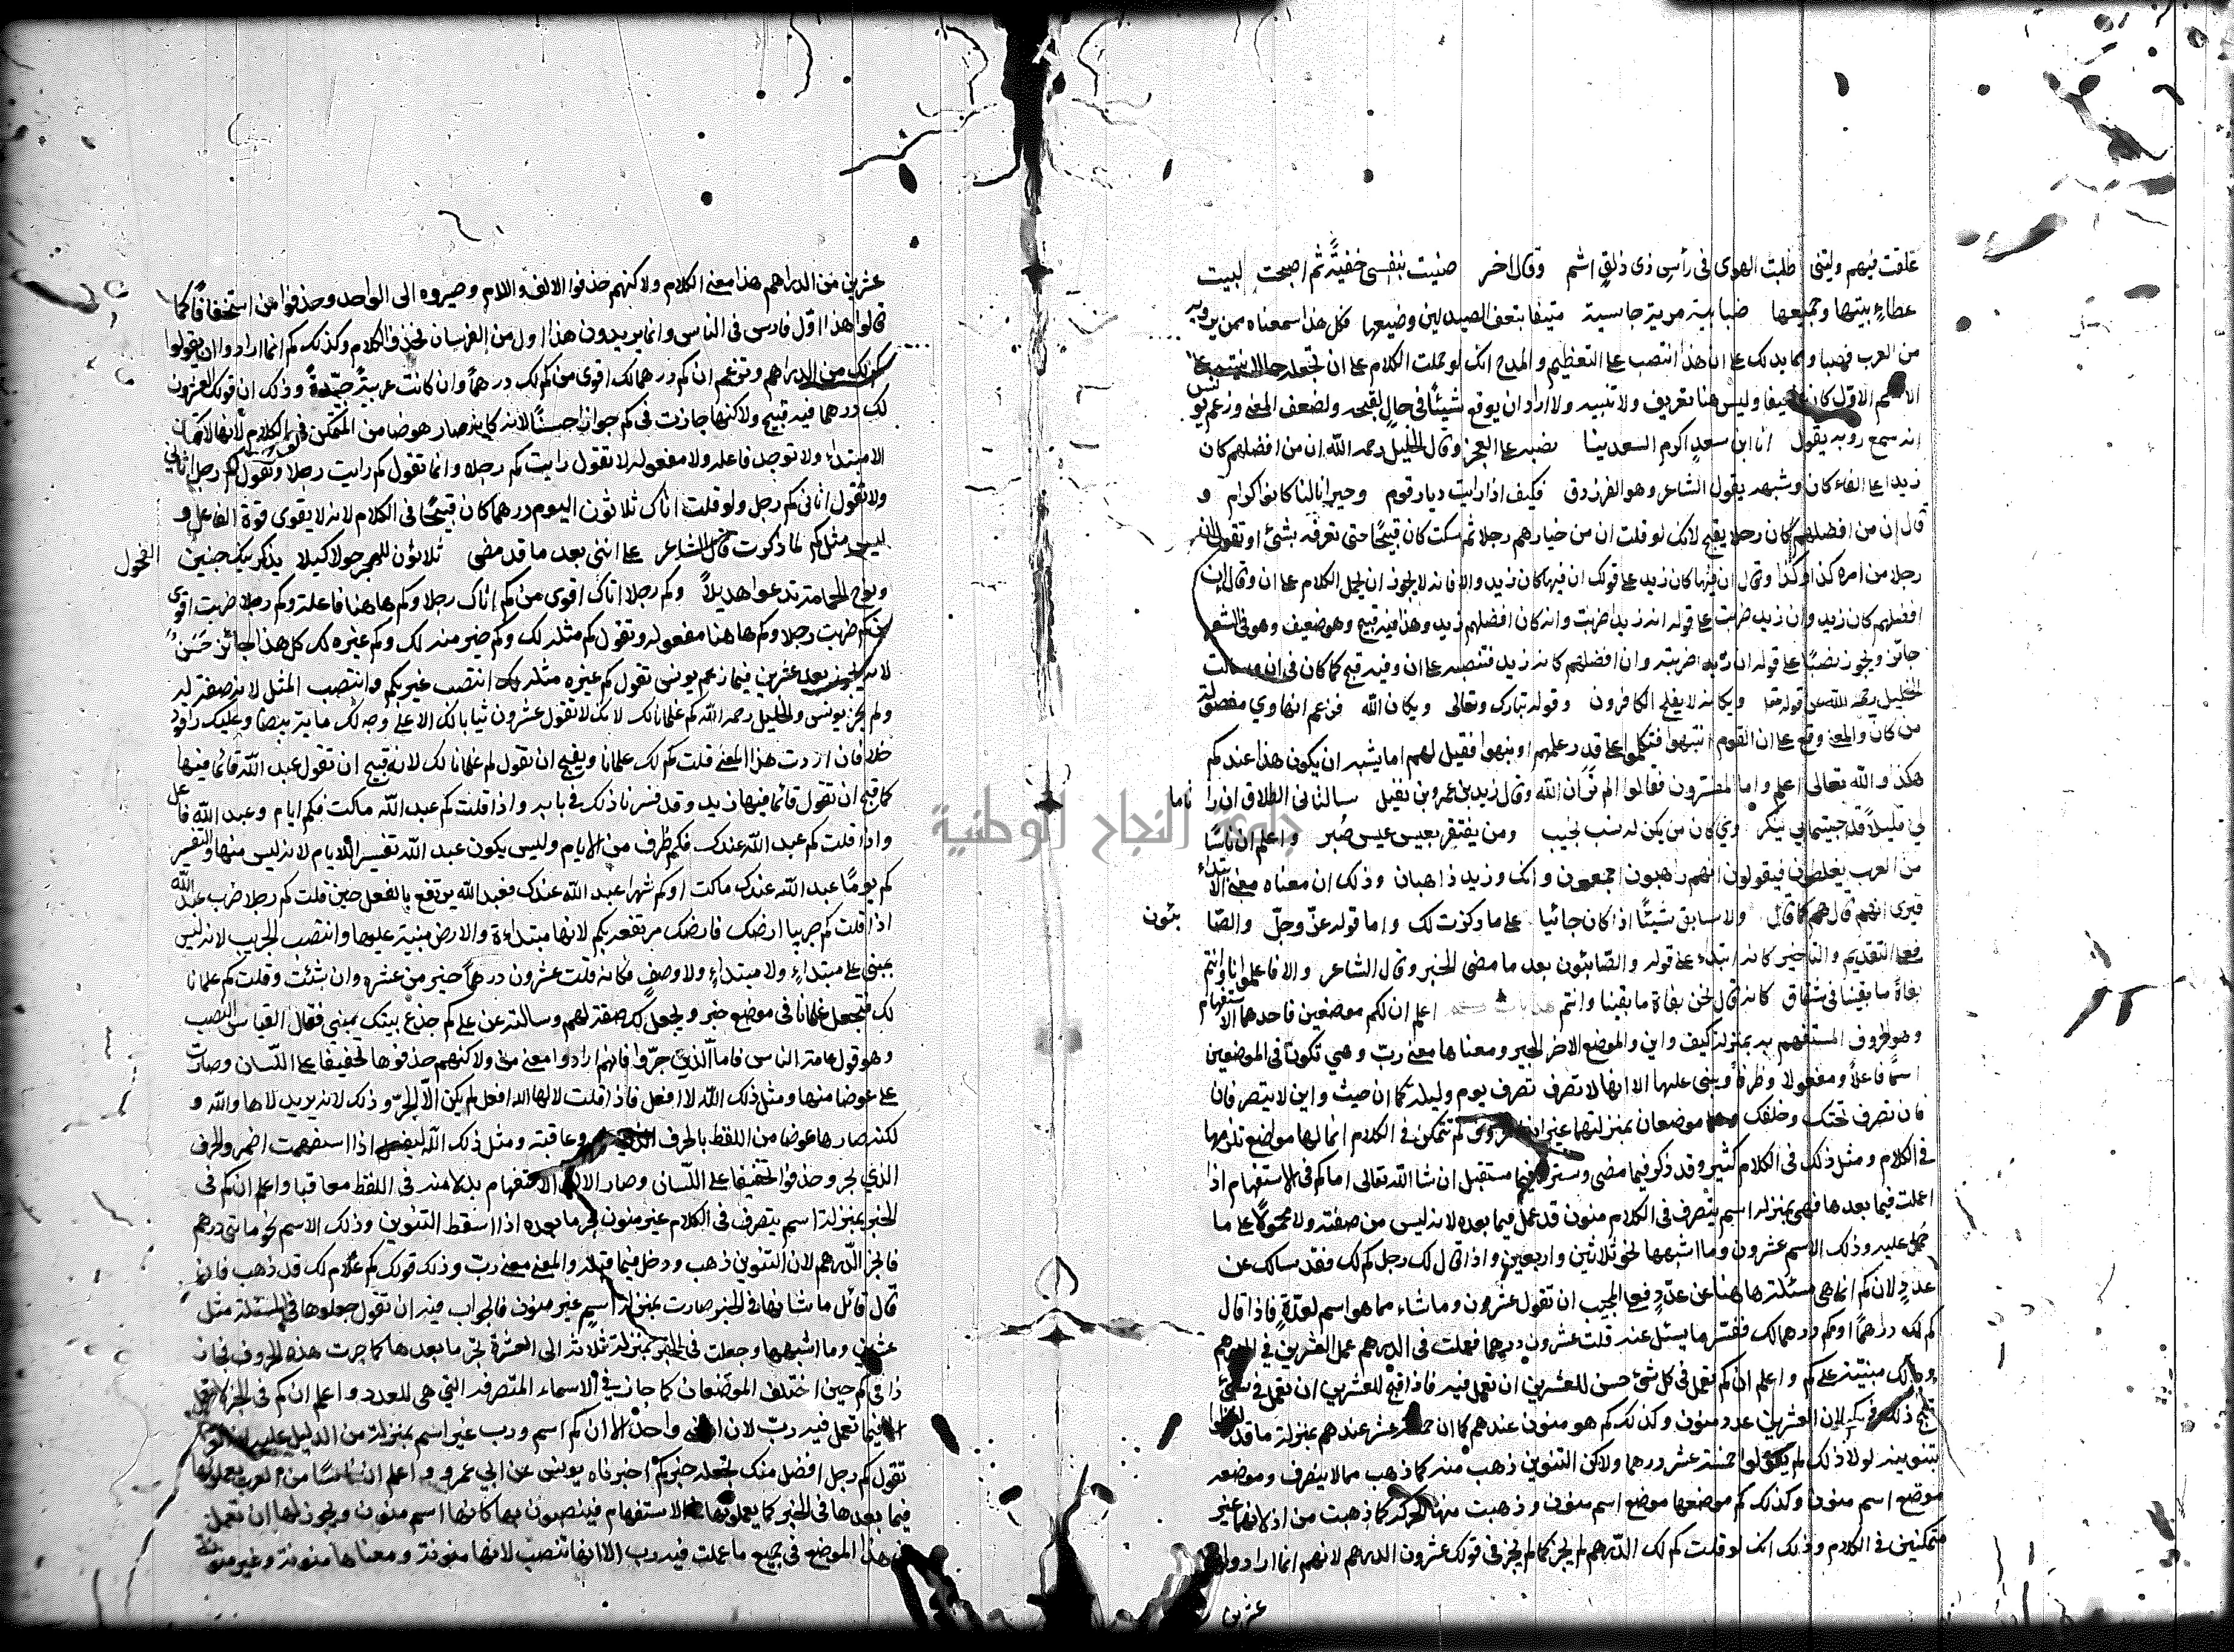 علقت فيهم وليتني طلبت الهوى في رأس ذي ذلق اشم وقال اخر ضنيت بنفسي حقبة ثم اصبحت لبنت
عطاء بينها وجميعها ضبابية مرية حابسية منيفا بنعف الصيدلين وضيعها فكل هذا سمعناه ممن يرويه
من العرب نصبا ومما يدلك على ان هذا انتصب على التعظيم والمدح انك لو حملت الكلام على ان تجعله حالا
الاسم الاول كان ضعيفا وليس هنا تعريف ولا تنبيه ولا اراد ان يوقع شيئا في حال لقبحه ولضعف المعنى وزعم يونس
انه سمع رؤبه يقول انا ابن سعد اكرم السعدينا نصبه على الفخر وقال الخليل رحمه الله ان من افضلهم كان
زيدا على الغاء كان وشبهه بقول الشاعر وهو الفرزدق فكيف اذا رايت ديار قوم وجيران لنا كانوا كرام و
قال ان من افضلهم كان رجلا يقبح لانك لو قلت ان من خيارهم رجلا ثم سكت كان قبيحا حتى تعرفه بشئ او تقول
رجلا من امره كذا وكذا وقال ان فيها كان زيد على قولك ان فيها كان زيد والا فانه لا يجوز ان يحمل الكلام على ان وقال ان
افضلهم كان زيد وان زيد ضربت على قوله انه زيدا ضربت وانه كان افضلهم زيد وهذا فيه قبح وهو ضعيف وهو في الشعر
جائز ويجوز نصبا على قوله ان زيدا ضربته وان افضلهم كانه زيد فتنصبه على ان وفيه قبح كما كان في ان وسالت
الخليل رحمه الله عن قوله ويكانه لا يفلح الكافرون وقوله تبارك وتعالى ويكان الله فزعم انها وي مفصولة
من كان والمعنى وقع على ان القوم انتبهوا فتكلموا على قدر علمهم او نبهوا فقيل لهم اما يشبه ان يكون هذا عندكم
هكذا والله تعالى اعلم واما المفسرون فقالوا الم تر ان الله وقال زيد بن عمرو بن نفيل سالتاني الطلاق ان را تاما
لي قليلا قد جئتماني بنكر وي كان من يكن له نشب يحبب ومن يفتقر يعيش عيش ضر واعلم ان ناسا
من العرب يغلطون فيقولون انهم اجمعون ذاهبون وانك وزيد ذاهبان وذلك ان معناه معنى الابتداء
فيرى انهم قال هم كما قال ولا سابق شيئا اذا كان جائيا على ما ذكرت لك واما قوله عز وجل والصا بئون
فعلى التقديم والتاخير كانه ابتدء على قوله والصابئون بعد ما مضى الخبر وقال الشاعر والا فاعلموا انا وانتم
بغاة ما بقينا في شقاق كانه قال نحن بغاة ما بقينا وانتم اعلم ان لكم موضعين فاحدهما الاستفهام
وهو الحروف المستفهم به بمنزلة كيف واين والموضع الاخر الخبر ومعناها معنى رب وهي تكون في الموضعين
اسما فاعلا ومفعولا وظرفا ويبنى عليها الا انها لا تصرف تصرف يوم وليلة كما ان حيث واين لا يتصرفان
تصرف تحتك وخلفك وهما موضعان بمنزلتهما غير انها حروف لم تتمكن في الكلام انما لها مواضع تلزمها
في الكلام ومثل ذلك في الكلام كثير وقد ذكر فيما مضى وستراه فيما مستقبل ان شا الله تعالى اما كم في الاستفهام اذا
اعملت فيما بعدها فهي بمنزلة اسم يتصرف في الكلام منون قد عمل فيما بعده لانه ليس من صفته ولا محمولا على ما
حمل عليه وذلك الاسم عشرون وما اشبهها نحو ثلاثين واربعين واذا قال لك رجل كم لك فقد سالك عن
عدد لان كم انما هي مسئلة هاهنا عن عدد فعلى المجيب ان تقول عشرون وما شاء مما هو اسم لعدة فاذا قال
كم لك درهما او كم درهما لك ففسر ما يسئل عنه قلت عشرون درهما فعملت في الدرهم عمل العشرين في الدرهم
ولك مبنية على كم واعلم ان كم تعمل في كل شئ حسن للعشرين ان تعمل فيه فاذا قبح للعشرين ان تعمل في شئ
قبح ذلك في كم لان العشرين عدد منون وكذلك كم هو منون عندهم كما ان خمسة عشر عندهم بمنزلة ما قد لفظوا
بتنوينه لولا ذلك لم يقولوا خمسة عشر درهما ولاكن التنوين ذهب منه كما ذهب مما لا ينصرف وموضعه
موضع اسم منون وكذلك كم موضعها موضع اسم منون وذهبت منها الحركة كما ذهبت من اذ لانهما غير
متمكنين في الكلام وذلك انك لو قلت كم لك الدرهم لم يجز كما لم يجز في قولك عشرون الدرهم لانهم انما ارادوا
عشرين
عشرين من الدراهم هذا معنى الكلام ولاكنهم حذفوا الالف واللام وصيروه الى الواحد وحذفوا من استخفافا كما
قالوا هذا اول فارس في الناس وانما يريدون هذا اول من الفرسان فحذف الكلام وكذلك كم انما ارادوا ان يقولوا
كم لك من الدراهم وتزعم ان كم درهما لك اقوى من كم لك درهما وان كانت عربية جيدة وذلك ان قولك العشرون
لك درهما فيه قبح ولاكنها جازت في كم جوازا حسنا لانه كانه صار عوضا من التمكن في الكلام لانها لا تكون الا
مبتداة ولا توجد فاعله ولا مفعوله لا تقول رايت كم رجلا وانما تقول كم رايت رجلا وتقول كم رجل اتاني
ولا تقول اتاني كم رجل ولو قلت اتاك ثلاثون اليوم درهما كان قبيحا في الكلام لانه لا يقوى قوة الفاعل و
ليس مثل كم لما ذكرت قال الشاعر على انني بعد ما قد مضى ثلاثون للهجر حولا كميلا يذكرنيك حنين العجول
ونوح الحمامة تدعوا هديلا وكم رجلا اتاك اقوى من كم اتاك رجلا وكم هاهنا فاعلة وكم رجلا ضربت اقوى
من كم ضربت رجلا وكم هاهنا مفعوله وتقول كم مثله لك وكم خير منه لك وكم غيره لك كل هذا جائز حسن
لانه يجوز بعد عشرين فيما زعم يونس تقول كم غيره مثله لك انتصب غير بكم وانتصب المثل لانه صفة له
ولم يجز يونس والخليل رحمه الله كم غلمانا لك لانك لا تقول عشرون ثيابا لك الا على وجه لك ماية بيضا وعليك راقود
خلا فان اردت هذا المعنى قلت كم لك غلمانا ويقبح ان تقول كم غلمانا لك لانه قبيح ان تقول عبد الله قائما فيها
كما قبح ان تقول قائما فيها زيد وقد فسرنا ذلك في بابه واذا قلت كم عبد الله ماكث فكم ايام وعبد الله فاعل
واذا قلت كم عبد الله عندك فكم ظرف من الايام وليس يكون عبد الله تفسير الايام لانه ليس منها والتفسير
كم يوما عبد الله عندك ماكث او كم شهرا عبد الله عندك فعبد الله يرتفع بالفعل حين قلت كم رجلا ضرب عبد الله
اذا قلت كم جريبا ارضك فارضك مرتفعة بكم لانها مبتداءة والارض مبنية عليها وانتصب الجريب لانه ليس
بمبني على مبتداء ولا مبتداء ولا وصف فكانه قلت عشرون درهما خير من عشرة وان شئت قلت كم غلمانا
لك فتجعل غلمانا في موضع خبر ويجعل لك صفة لهم وسالته عن على كم جذع بيتك مبني فقال القياس النصب
وهو قول عامة الناس فاما الذين جروا فانهم ارادوا معنى من ولاكنهم حذفوها تخفيفا على اللسان وصارت
على عوضا منها ومثل ذلك الله لا افعل فاذا قلت لاها الله افعل لم يكن الا الجر وذلك لانه يريد لاها والله و
لكنه صار ها عوضا من اللفظ بالحرف الذي يجر وعاقبته ومثل ذلك الله ليفعلن اذا استفهمت اضمروا الحرف
الذي يجر وحذفوا تخفيفا على اللسان وصار الاف الاستفهام بدلا منه في اللفظ معاقبا واعلم ان كم في
الخبر بمنزلة اسم يتصرف في الكلام غير منون يجر ما بعده اذا اسقط التنوين وذلك الاسم نحو مائتي درهم
فانجر الدرهم لان التنوين ذهب ودخل فيما قبله والمعنى معنى رب وذلك قولك كم غلام لك قد ذهب فان
قال قائل ما شانها في الخبر صارت بمنزلة اسم غير منون فالجواب فيه ان تقول جعلوها في المسئلة مثل
عشرين وما اشبهها وجعلت في الخبر بمنزلة ثلاثة الى العشرة تجر ما بعدها كما جرت هذه الحروف فجاز
ذا في كم حين اختلف الموضعان كما جاز في الاسماء المتصرفه التي هي للعدد واعلم ان كم في الخبر لا تعمل
الا فيما تعمل فيه رب لان المعنى واحد الا ان كم اسم ورب غير اسم بمنزلة من الدليل عليه ان العرب
تقول كم رجل افضل منك تجعله خبر كم اخبرناه يونس عن ابي عمرو واعلم ان ناسا من العرب يعملونها
فيما بعدها في الخبر كما يعملونها في الاستفهام فينصبون بها كانها اسم منون ويجوز لها ان تعمل
في هذا الموضع في جميع ما عملت فيه رب الا انها تنصب لانها منونة ومعناها منونة وغير منونة
جامعة النجاح الوطنية